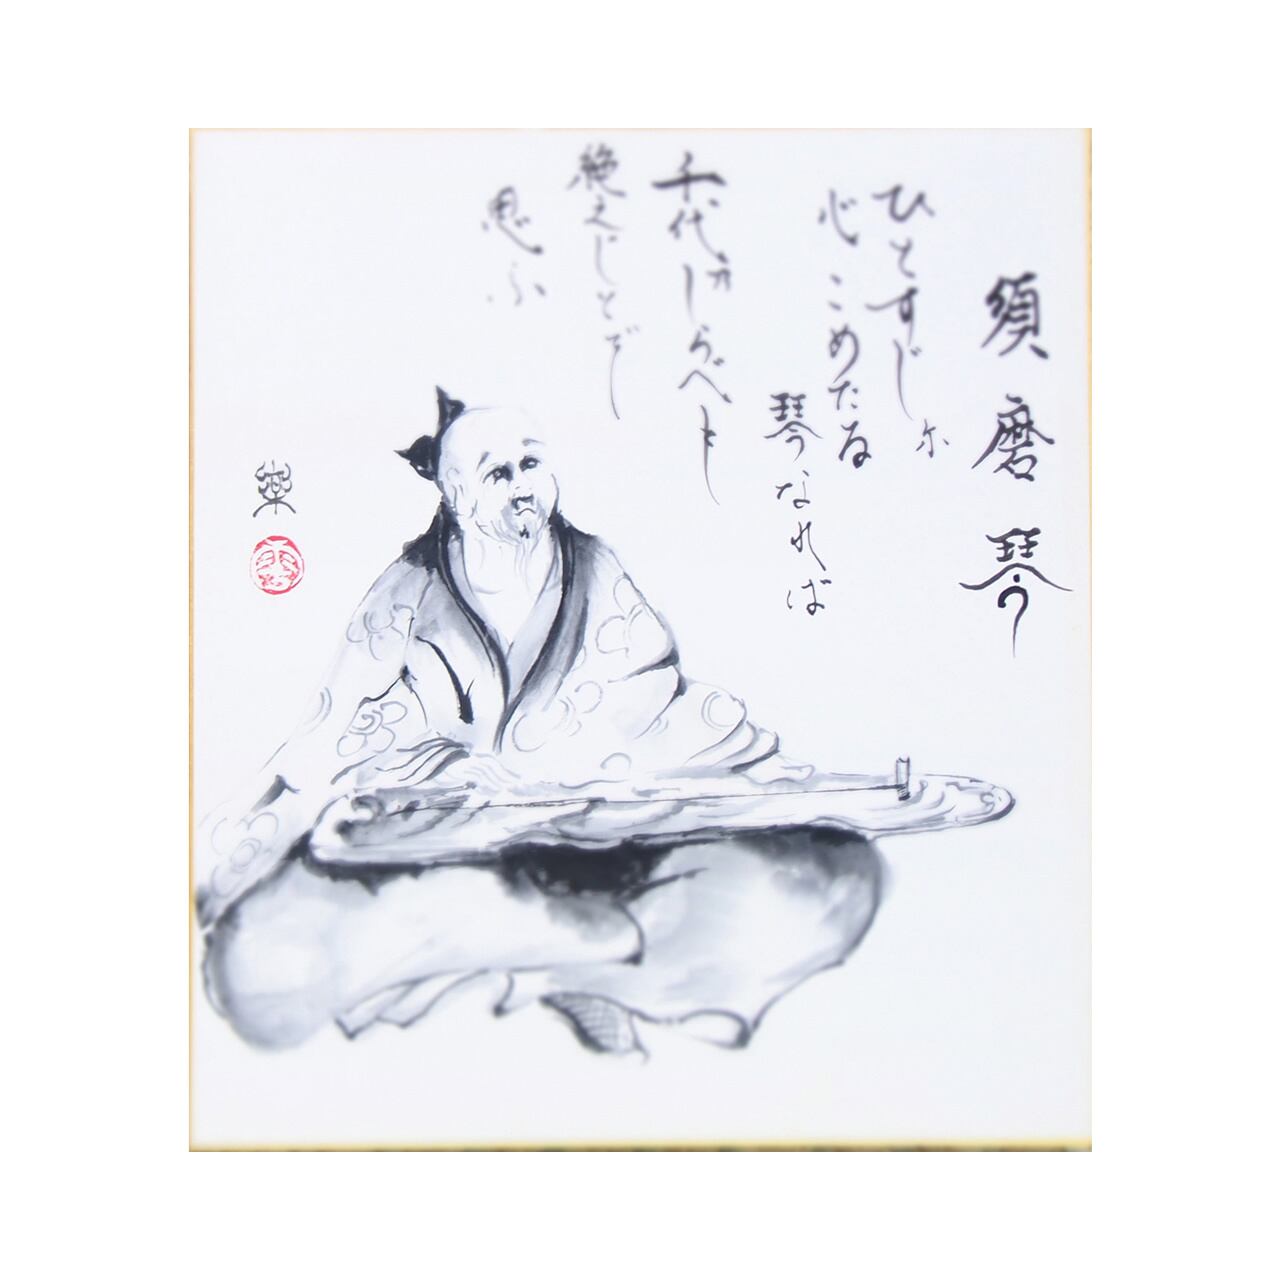 須磨琴
ひとすじに
心こめたる
琴なれば
千代のしらべも
絶えじとぞ
思ふ
樂